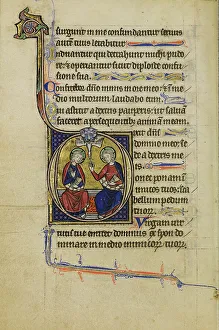 surgunt in me confundantur seruus
autem tuus letabitur
Induantur qui detrahunt michi pudo
re et operiantur sicut diploide confu
sione sua
Confitebor dño nimis in ore meo et in me
dio multorum laudabo eum
Qui astitit a dextris pauperis ut saluam
faceret a persequentibus animam meam
dñs
domino meo
sede a dextris me
is
Donec ponam ini
micos tuos sca
bellum pedum
tuorum
Virgam uir
tutis tue emittet dominus ex syon do
minare in medio inimicorum tuorum